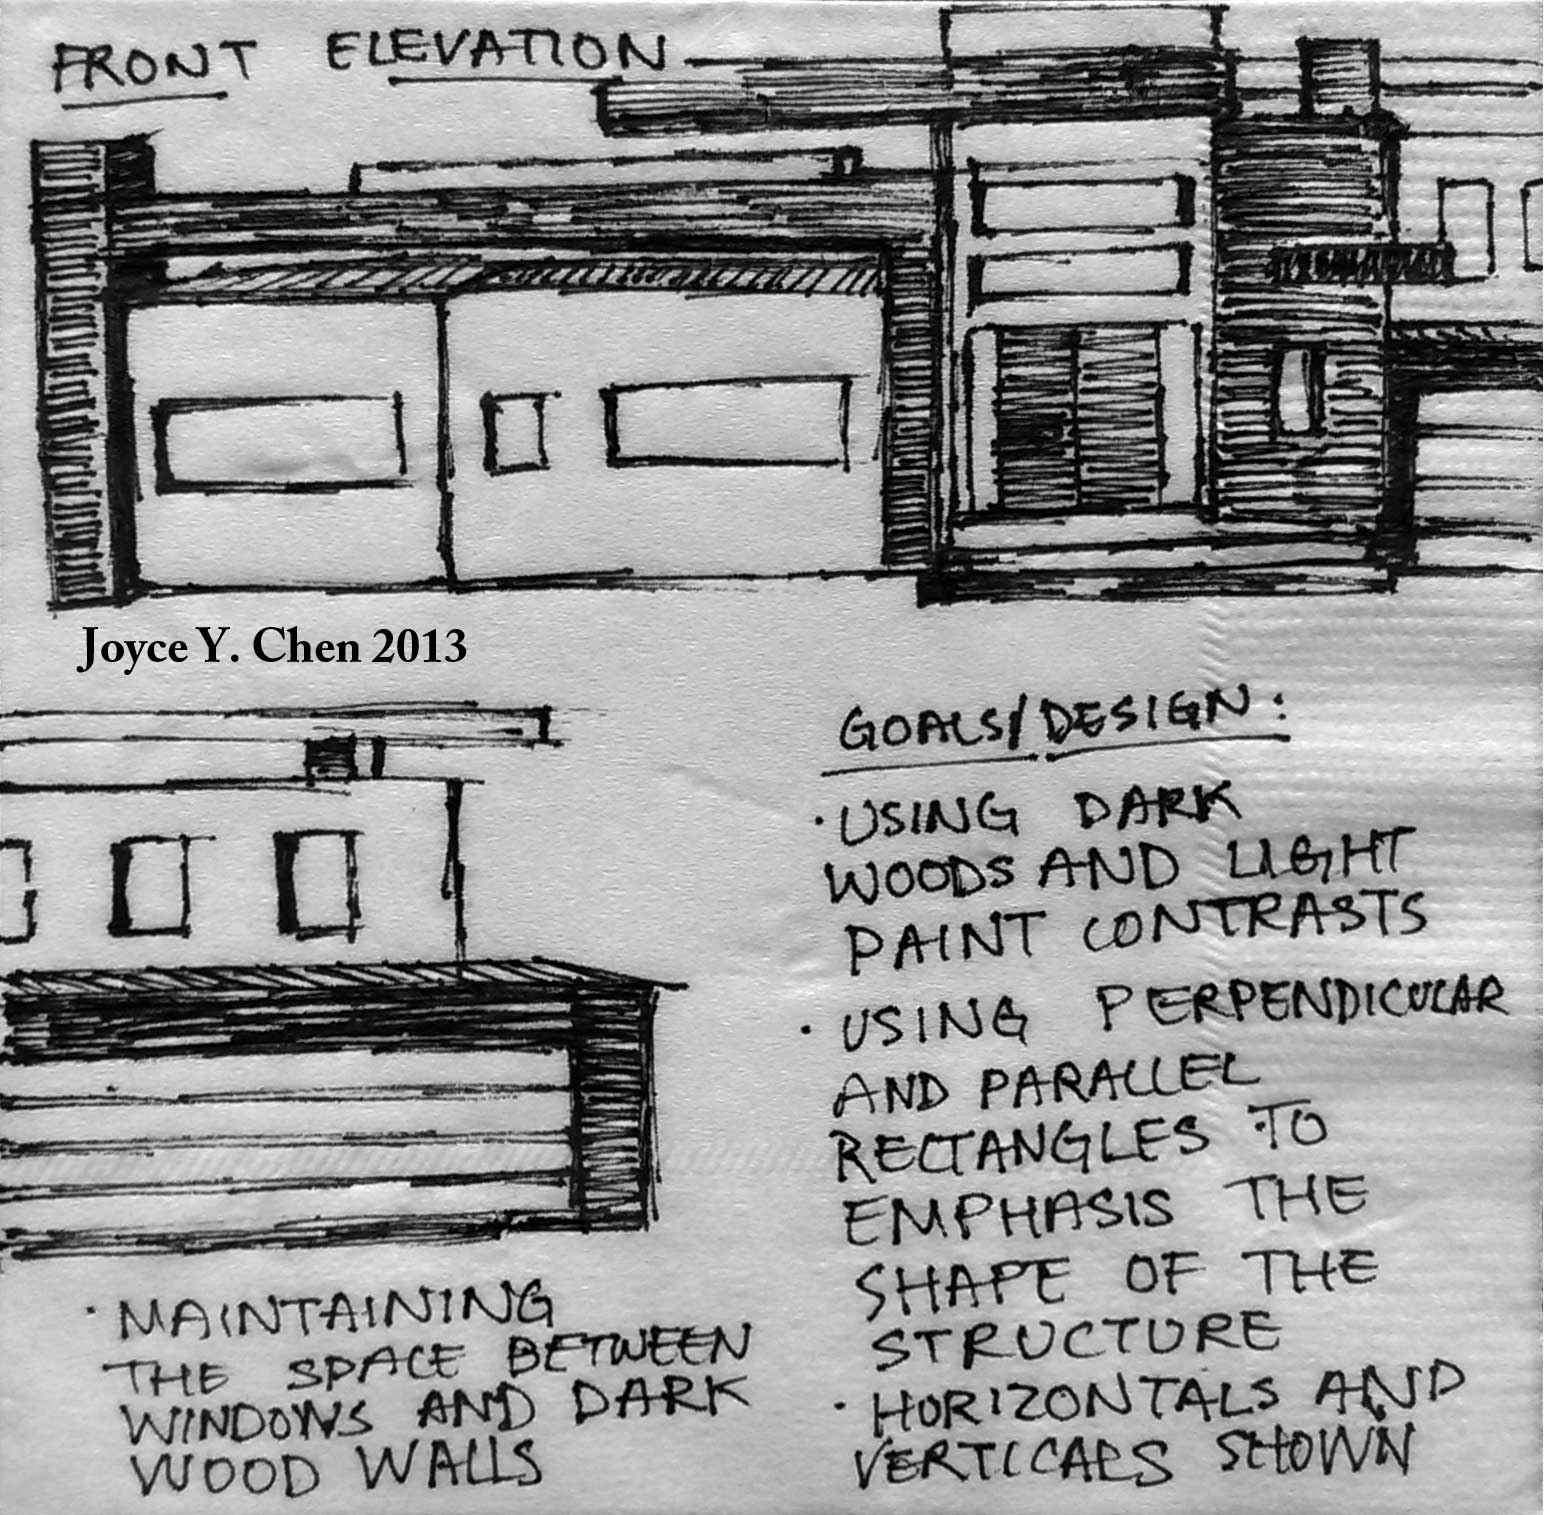 FRONT ELEVATION
Joyce Y. Chen 2013
GOALS/DESIGN:
· USING DARK
WOODS AND LIGHT
PAINT CONTRASTS
· USING PERPENDICULAR
AND PARALLEL
RECTANGLES TO
EMPHASIS THE
SHAPE OF THE
STRUCTURE
· HORIZONTALS AND
VERTICALS SHOWN
· MAINTAINING
THE SPACE BETWEEN
WINDOWS AND DARK
WOOD WALLS